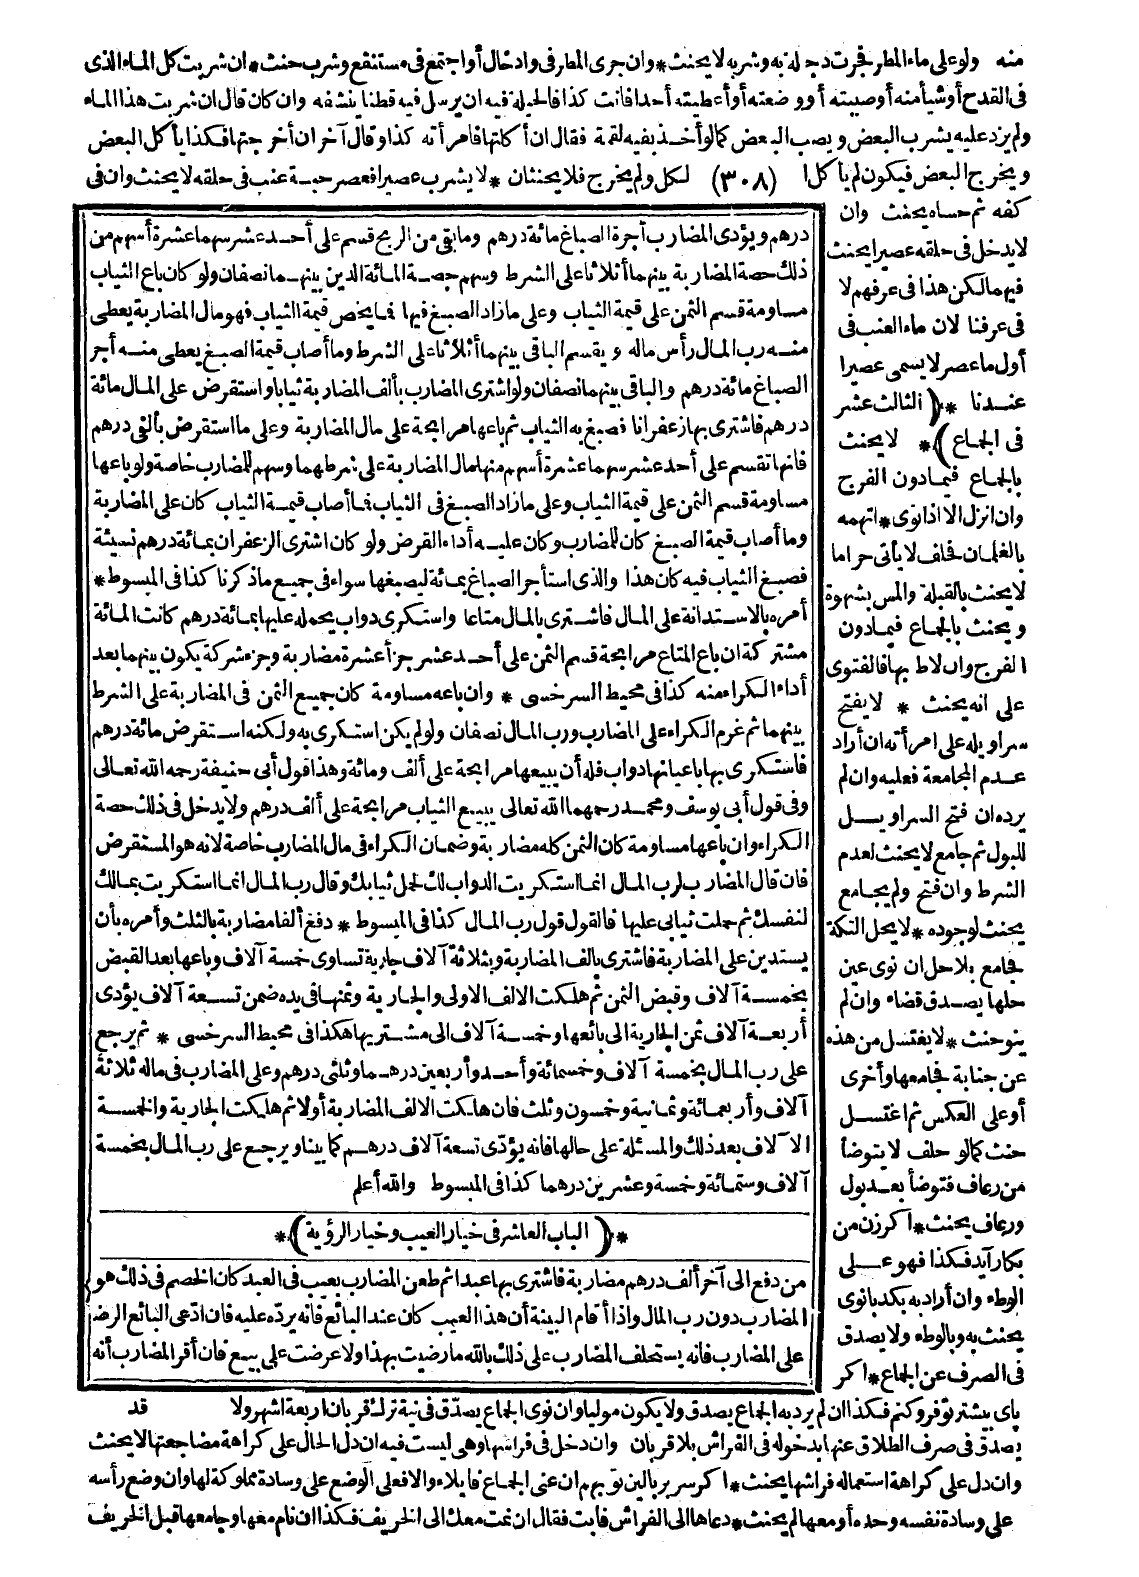 منه ولو على ماء المطر فجرت دجلة به وشربه لا يحنث * وان جرى المطر فى واد خال أو اجتمع فى مستنقع وشرب حنث * ان شربت كل الماء الذى
فى القدح أو شيأ منه أو صببته أو وضعته أو أعطيته أحدا فانت كذا فالحيلة فيه ان يرسل فيه قطنا ينشفه وان كان قال ان شربت هذا الماء
ولم يزد عليه يشرب البعض ويصب البعض كما لو أخذ بفيه لقمة فقال ان أكلتها فامرأته كذا وقال آخر ان أخرجتها فكذا يأكل البعض
ويخرج البعض فيكون لم يأكل ا (٣٠٨) لكل ولم يخرج فلا يحنثان * لا يشرب عصيرا فعصر حبة عنب فى حلقه لا يحنث وان فى
كفه ثم حساه يحنث وان
لا يدخل فى حلقه عصيرا يحنث
فيهما لكن هذا فى عرفهم لا
فى عرفنا لان ماء العنب فى
أول ما عصر لا يسمى عصيرا
عندنا * (الثالث عشر
فى الجماع) * لا يحنث
بالجماع فيما دون الفرج
وان انزل الا اذا نوى * اتهمه
بالغلمان فحلف لا يأتى حراما
لا يحنث بالقبلة والمس بشهوة
ويحنث بالجماع فيما دون
الفرج وان لاط بها فالفتوى
على انه يحنث * لا يفتح
سراويله على امرأته ان أراد
عدم المجامعة فعليه وان لم
يرده ان فتح السراويل
للبول ثم جامع لا يحنث لعدم
الشرط وان فتح ولم يجامع
يحنث لوجوده * لا يحل التكة
فجامع بلا حل ان نوى عين
حلها يصدق قضاء وان لم
ينو حنث * لا يغتسل من هذه
عن جنابة فجامعها وأخرى
أو على العكس ثم اغتسل
حنث كما لو حلف لا يتوضأ
من رعاف فتوضأ بعد بول
ورعاف يحنث * اكر زن من
بكار آيد فكذا فهو على
الوطء وان أراد به بكد بانوى
يحنث به وبالوطء ولا يصدق
فى الصرف عن الجماع * اكر
درهم ويؤدى المضارب أجرة الصباغ مائة درهم وما بقى من الربح قسم على أحد عشر سهما عشرة أسهم من
ذلك حصة المضاربة بينهما أثلاثا على الشرط وسهم حصة المائة الدين بينهما نصفان ولو كان باع الثياب
مساومة قسم الثمن على قيمة الثياب وعلى ما زاد الصبغ فيها فما يخص قيمة الثياب فهو مال المضاربة يعطى
منه رب المال رأس ماله ويقسم الباقى بينهما أثلاثا على الشرط وما أصاب قيمة الصبغ يعطى منه أجر
الصباغ مائة درهم والباقى بينهما نصفان ولو اشترى المضارب بألف المضاربة ثيابا واستقرض على المال مائة
درهم فاشترى بها زعفرانا فصبغ به الثياب ثم باعها مرابحة على مال المضاربة وعلى ما استقرض بألفى درهم
فانها تقسم على أحد عشر سهما عشرة أسهم منها مال المضاربة على شرطهما وسهم للمضارب خاصة ولو باعها
مساومة قسم الثمن على قيمة الثياب وعلى ما زاد الصبغ فى الثياب فما أصاب قيمة الثياب كان على المضاربة
وما أصاب قيمة الصبغ كان للمضارب وكان عليه أداء القرض ولو كان اشترى الزعفران بمائة درهم نسيئة
فصبغ الثياب فيه كان هذا والذى استأجر الصباغ بمائة ليصبغها سواء فى جميع ما ذكرنا كذا فى المبسوط *
أمره بالاستدانة على المال فاشترى بالمال متاعا واستكرى دواب يحمله عليها بمائة درهم كانت المائة
مشتركة ان باع المتاع مرابحة قسم الثمن على أحد عشر جزأ عشرة مضاربة وجزء شركة يكون بينهما بعد
أداء الكراء منه كذا فى محيط السرخسى * وان باعه مساومة كان جميع الثمن فى المضاربة على الشرط
بينهما ثم غرم الكراء على المضارب ورب المال نصفان ولو لم يكن استكرى به ولكنه استقرض مائة درهم
فاستكرى بها باعيانها دواب فله أن يبيعها مرابحة على ألف ومائة وهذا قول أبى حنيفة رحمه الله تعالى
وفى قول أبى يوسف ومحمد رحمهما الله تعالى يبيع الثياب مرابحة على ألف درهم ولا يدخل فى ذلك حصة
الكراء وان باعها مساومة كان الثمن كله مضاربة وضمان الكراء فى مال المضارب خاصة لانه هو المستقرض
فان قال المضارب لرب المال انما استكريت الدواب لك لحمل ثيابك وقال رب المال انما استكريت بمالك
لنفسك ثم حملت ثيابى عليها فالقول قول رب المال كذا فى المبسوط * دفع ألفا مضاربة بالثلث وأمره بأن
يستدين على المضاربة فاشترى بالف المضاربة وبثلاثة آلاف جارية تساوى خمسة آلاف وباعها بعد القبض
بخمسة آلاف وقبض الثمن ثم هلكت الالف الاولى والجارية وثمنها فى يده ضمن تسعة آلاف يؤدى
أربعة آلاف ثمن الجارية الى بائعها وخمسة آلاف الى مشتريها هكذا فى محيط السرخسى * ثم يرجع
على رب المال بخمسة آلاف وخمسمائة وأحد وأربعين درهما وثلثى درهم وعلى المضارب فى ماله ثلاثة
آلاف وأربعمائة وثمانية وخمسون وثلث فان هلكت الالف المضاربة أولا ثم هلكت الجارية والخمسة
الآلاف بعد ذلك والمسئلة على حالها فانه يؤدى تسعة آلاف درهم كما بينا ويرجع على رب المال بخمسة
آلاف وستمائة وخمسة وعشرين درهما كذا فى المبسوط والله أعلم
* (الباب العاشر فى خيار العيب وخيار الرؤية) *
من دفع الى آخر ألف درهم مضاربة فاشترى بها عبدا ثم طعن المضارب بعيب فى العبد كان الخصم فى ذلك هو
المضارب دون رب المال واذا أقام البينة أن هذا العيب كان عند البائع فانه يرده عليه فان ادعى البائع الرضا
على المضارب فانه يستحلف المضارب على ذلك بالله ما رضيت بهذا ولا عرضت على بيع فان أقر المضارب أنه
قد
پاى بيشتر تو فروكنم فكذا ان لم يرد به الجماع يصدق ولا يكون موليا وان نوى الجماع يصدق فى نية ترك قربان اربعة اشهر ولا
يصدق فى صرف الطلاق عنها بدخوله فى الفراش بلا قربان وان دخل فى فراشها وهى ليست فيه ان دل الحال على كراهة مضاجعتها لا يحنث
وان دل على كراهة استعماله فراشها يحنث * اكر سر بر بالين تو بهم ان عنى الجماع فايلاء والا فعلى الوضع على وسادة مملوكة لها وان وضع رأسه
على وسادة نفسه وحده أو معها لم يحنث * دعاها الى الفراش فابت فقال ان نمت معك الى الخريف فكذا ان نام معها وجامعها قبل الخريف